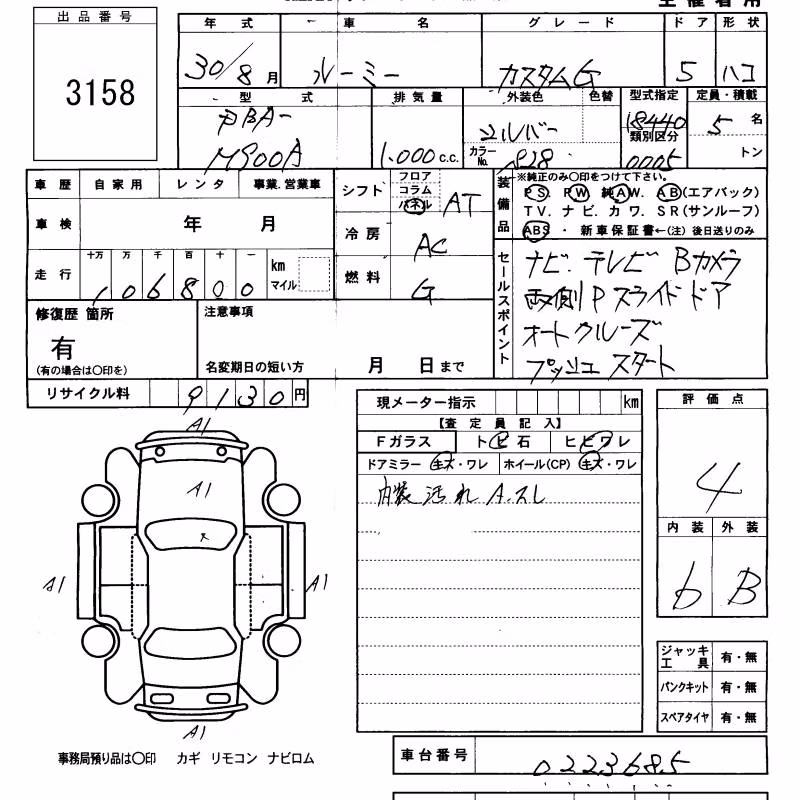 出品番号
3158
年式 車名 グレード ドア 形状
30/8月 ルーミー カスタムG 5 ハコ
型式 排気量 外装色 色替 型式指定 定員・積載
DBA- M900A 1,000c.c. シルバー 18440 5名
カラーNo. S28 類別区分 0005 トン
車歴 自家用 レンタ 事業.営業車
車検 年 月
十万 万 千 百 十 一
走行 106800 km マイル
シフト フロア コラム パネル AT
冷房 AC
燃料 G
装備品
※純正のみ〇印をつけて下さい。
PS. PW 純AW. AB(エアバック)
TV. ナビ. カワ. SR(サンルーフ)
ABS ・ 新車保証書←(注) 後日送りのみ
セールスポイント
ナビ. テレビ Bカメラ
両側Pスライドドア
オートクルーズ
プッシュスタート
修復歴 箇所
有
(有の場合は〇印を)
注意事項
名変期日の短い方 月 日まで
リサイクル料 9130円
現メーター指示 km
【査定員記入】
Fガラス トビ石 ヒビワレ
ドアミラー キズ・ワレ ホイール(CP) キズ・ワレ
内装汚れ A.スレ
評価点
4
内装 外装
b B
A1
A1
A1 A1
A1
ジャッキ工具 有・無
パンクキット 有・無
スペアタイヤ 有・無
事務局預り品は〇印 カギ リモコン ナビロム
車台番号 0223685